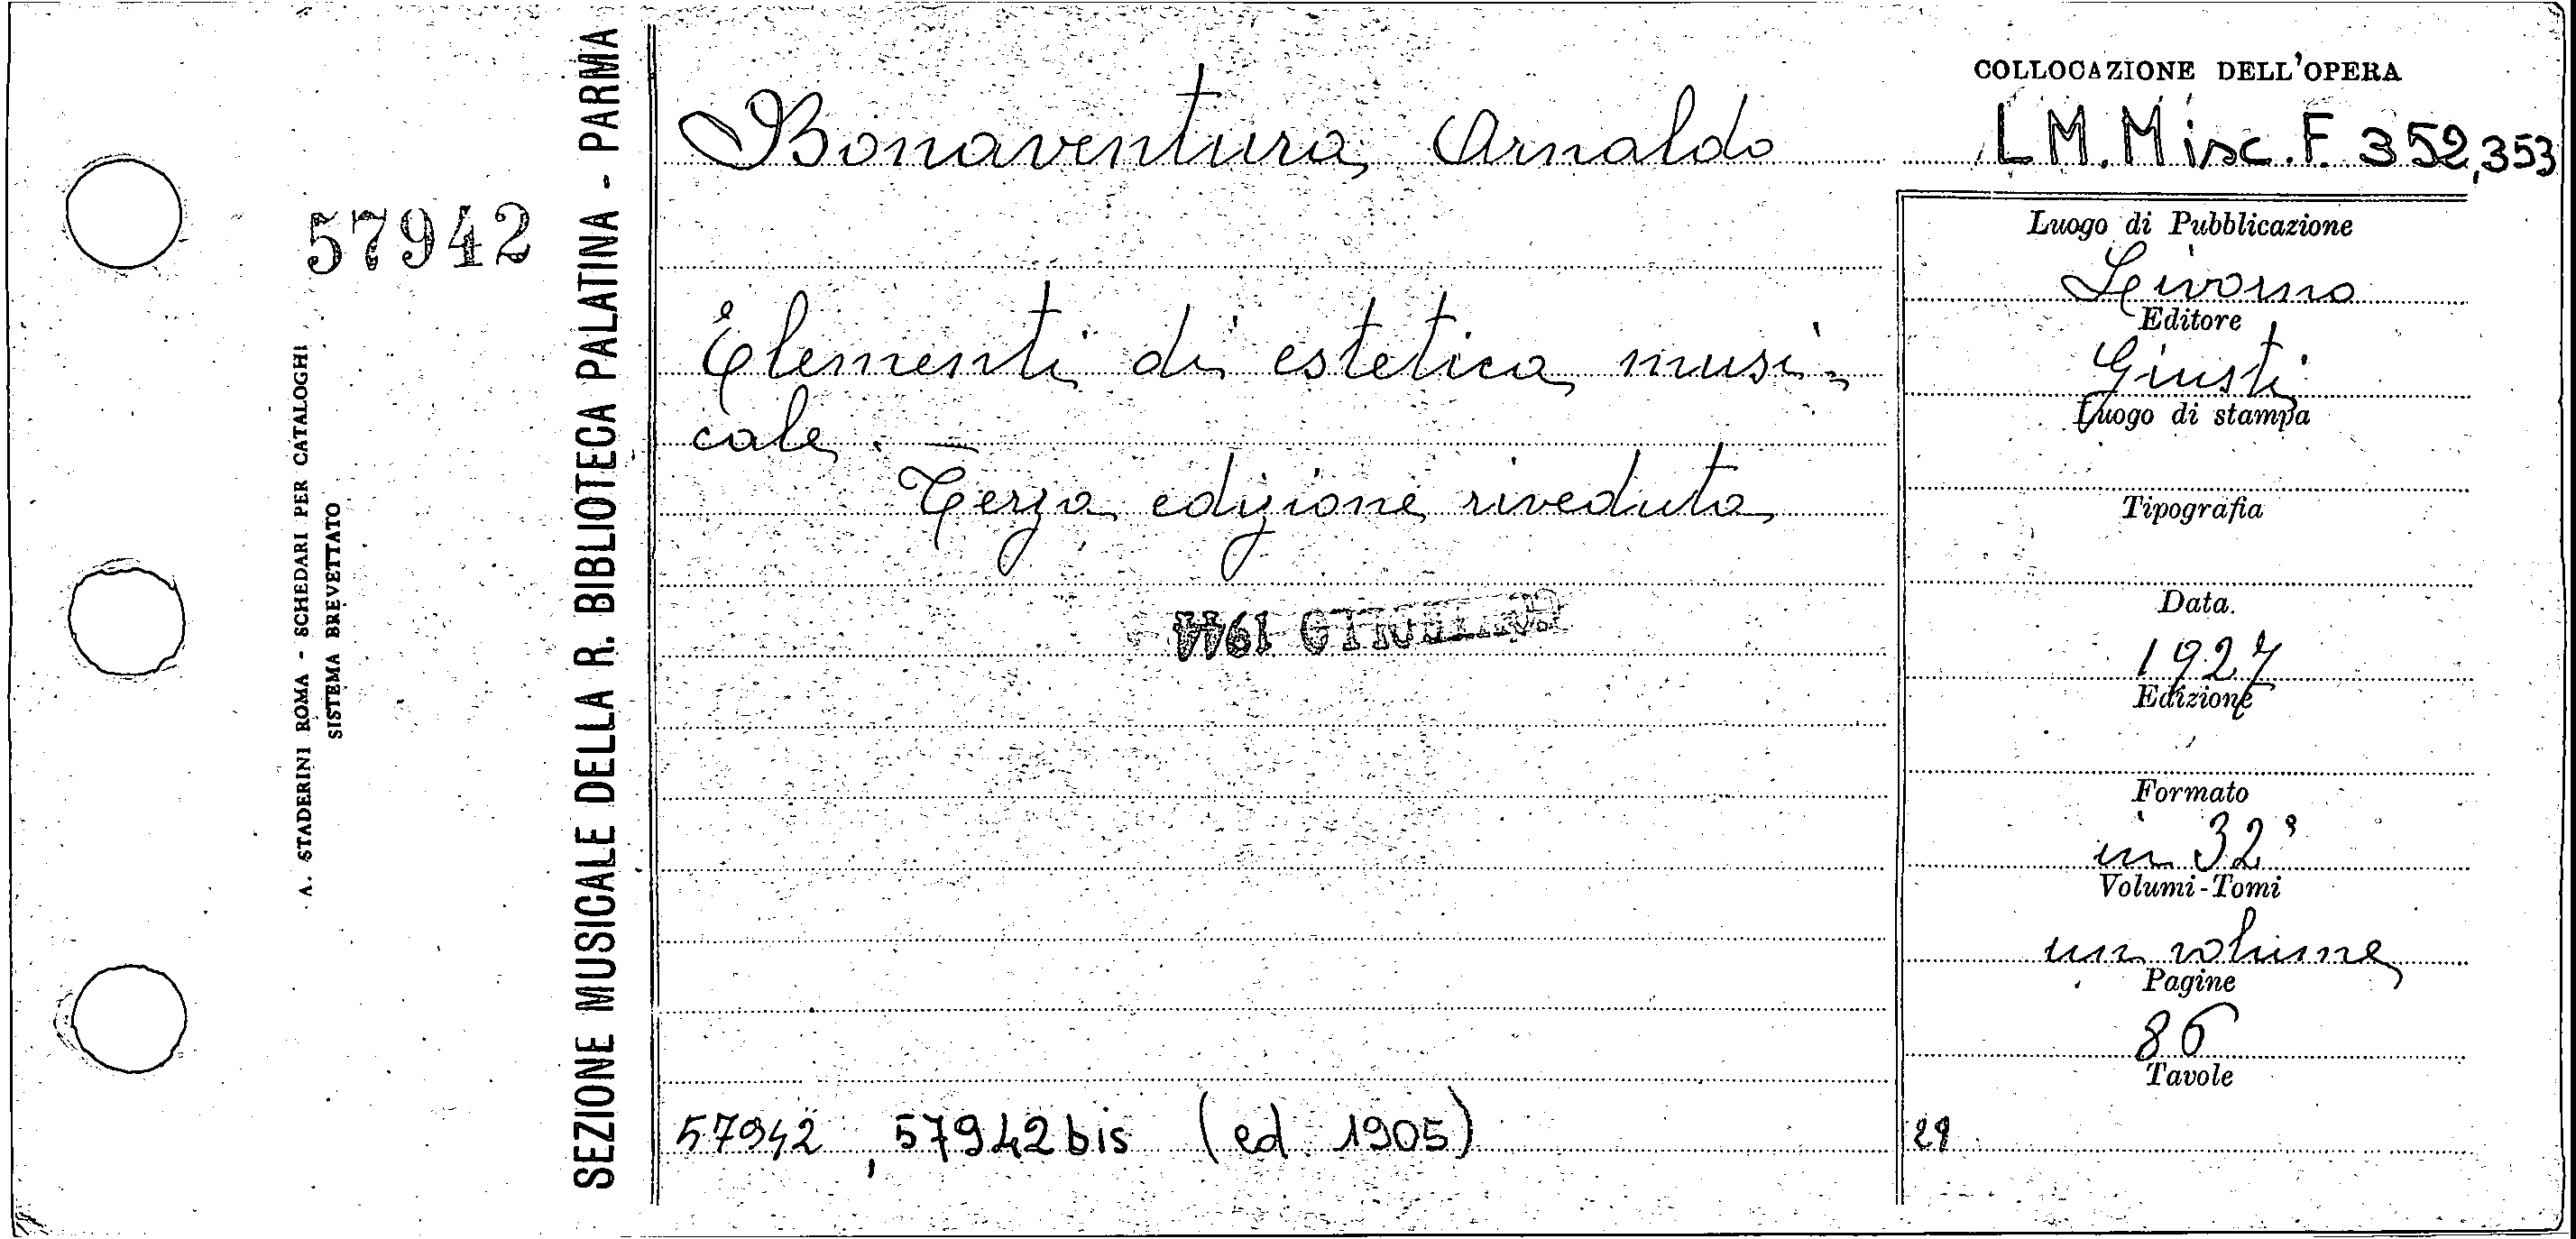 57942
A. STADERINI ROMA - SCHEDARI PER CATALOGHI
SISTEMA BREVETTATO
SEZIONE MUSICALE DELLA R. BIBLIOTECA PALATINA - PARMA
Bonaventura Arnaldo
Elementi di estetica musi-
cale. —
Terza edizione riveduta
1944
57942, 57942 bis (ed 1905)
COLLOCAZIONE DELL'OPERA
L.M. Misc. F. 352,353
Luogo di Pubblicazione
Livorno
Editore
Giusti
Luogo di stampa
Tipografia
Data
1927
Edizione
Formato
in 32°
Volumi-Tomi
un volume
Pagine
86
Tavole
29